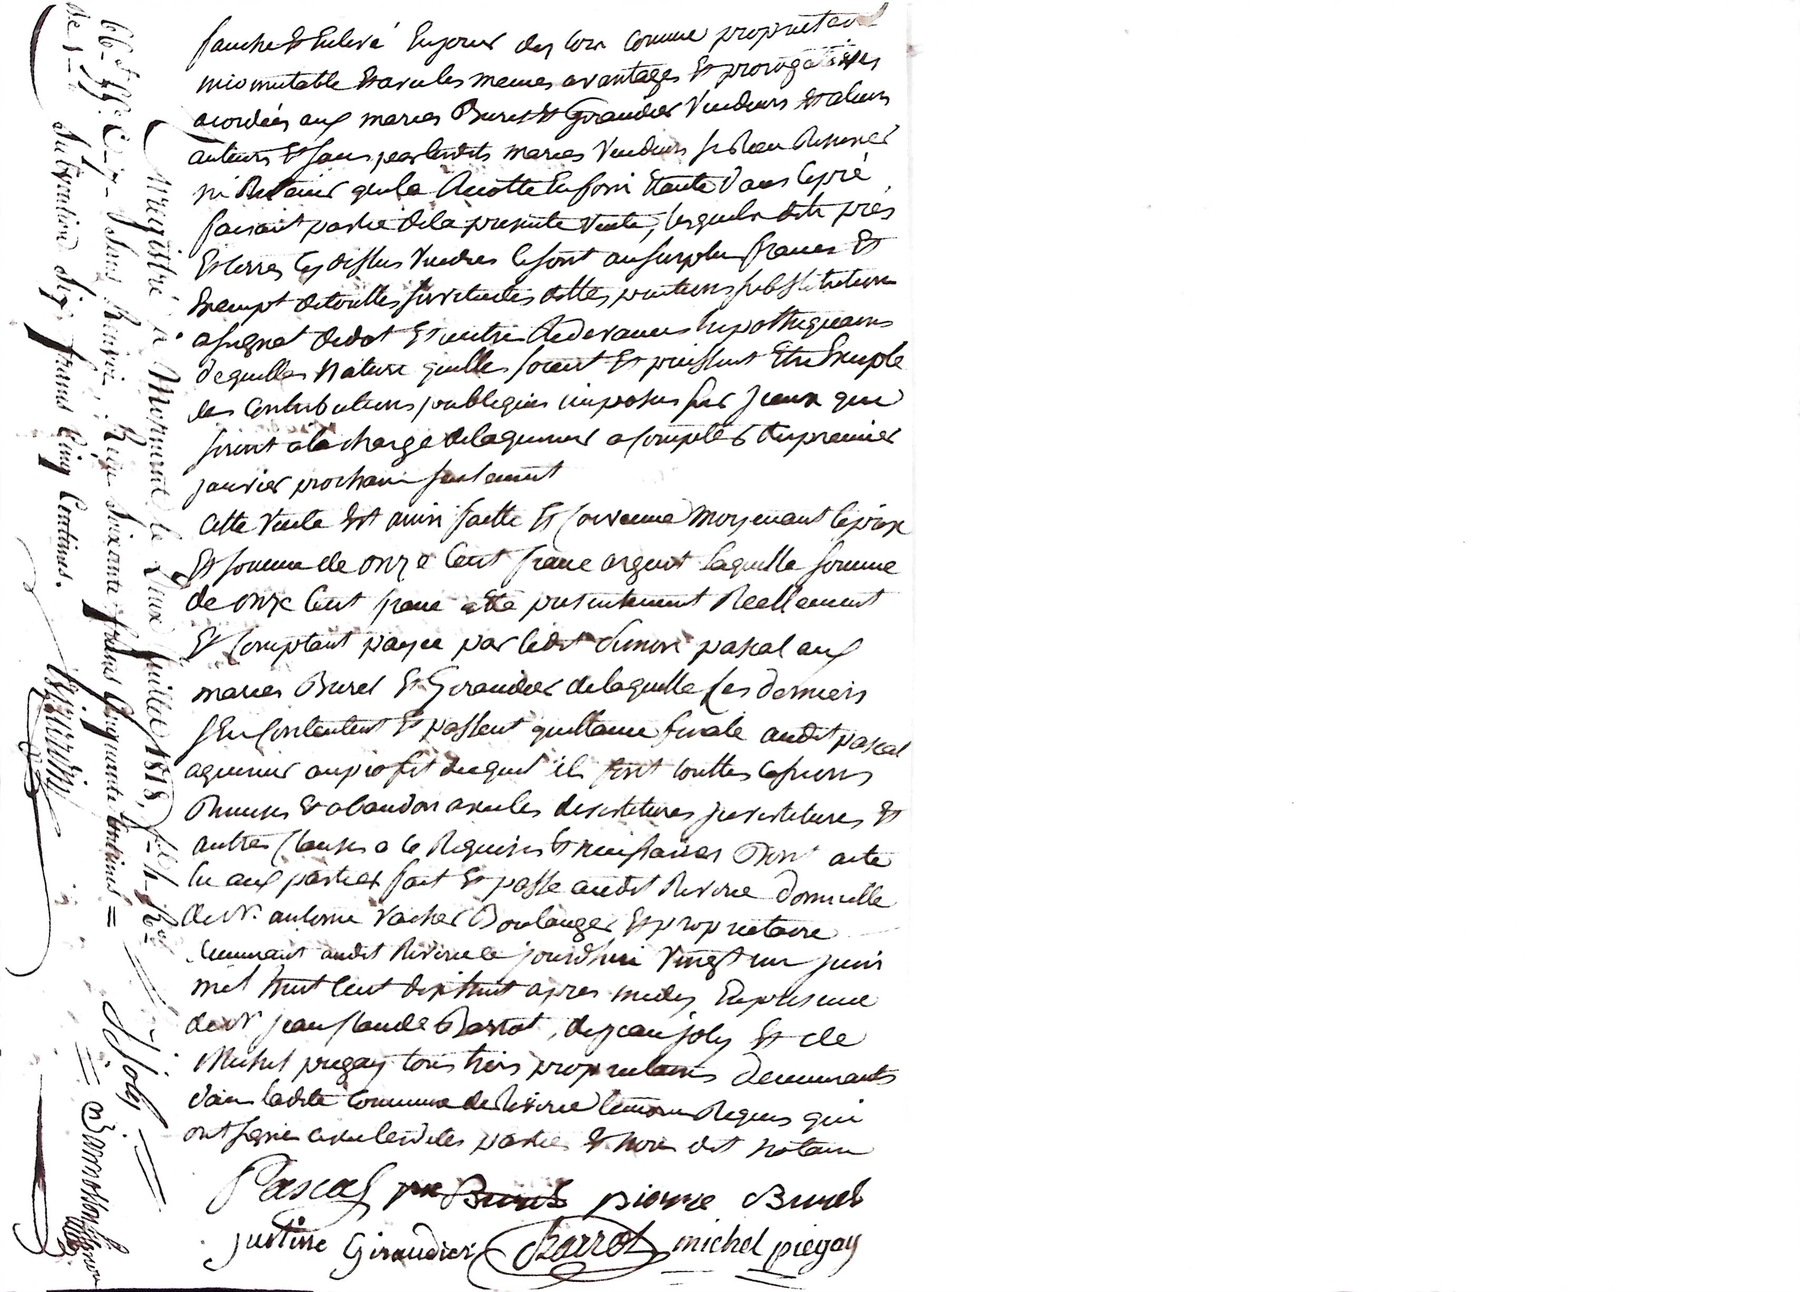 fauché et enlevé en jouir dez lors comme propriétaire
incomutable et avec les memes avantages et prerogatives
acordées aux maries Burel et Giraudier Vendeurs et a leurs
auteurs et sans par lesdits maries Vendeurs se Rien Reserver
ni Retenir que la Recolte en foin etante dans le pré
faisant partie de la presente Vente, lesquels dits prés
et terres cy dessus Vendues le sont au surplus frances et
exempt de touttes servitudes dettes pentions substitution
assignat de dot et autre Redevances hipothequaires
de quelles nature quelle soient et puissent etre Excepte
les Contributions publiques imposes sur Jceux qui
seront a la charge de laquereur a compter du premier
janvier prochain seulement
Cette Vente est ainsi faitte et Convenue Moyenant le prix
et somme de onze Cent franc argent laquelle somme
de onze Cent franc a été presentement Reellement
et Comptant payée par ledit Simon pascal aux
maries Burel et Giraudier de laquelle Ces derniers
s'en Contentent et passent quittance finale audit pascal
aquereur au profit duquel ils font touttes Cessions
Remises et abandon avec les devetitures jnvetitures et
autres Clauses a ce Requises et necessaires Dont acte
lu aux parties fait et passé audit Riverie domicille
de Sr. antoine Vacher Boulanger et proprietaire
demeurant audit Riverie le jourdhui Vingt un juin
mil huit Cent dix huit apres midy En presence
de Sr jean Claude Barrot, de jean joly et de
Michel piegay tous trois proprietaires demeurants
dans ladite Commune de Riverie temoins Requis qui
ont signé avec lesdites parties et nous dit notaire
Pascal Burel pierre Burel
justine Giraudier Barrot michel piegay
JJoly
Enregistré à Mornant le deux Juillet 1818,
Reçu soixante francs cinquante centimes =
de Subvention Six francs Cinq Centimes.